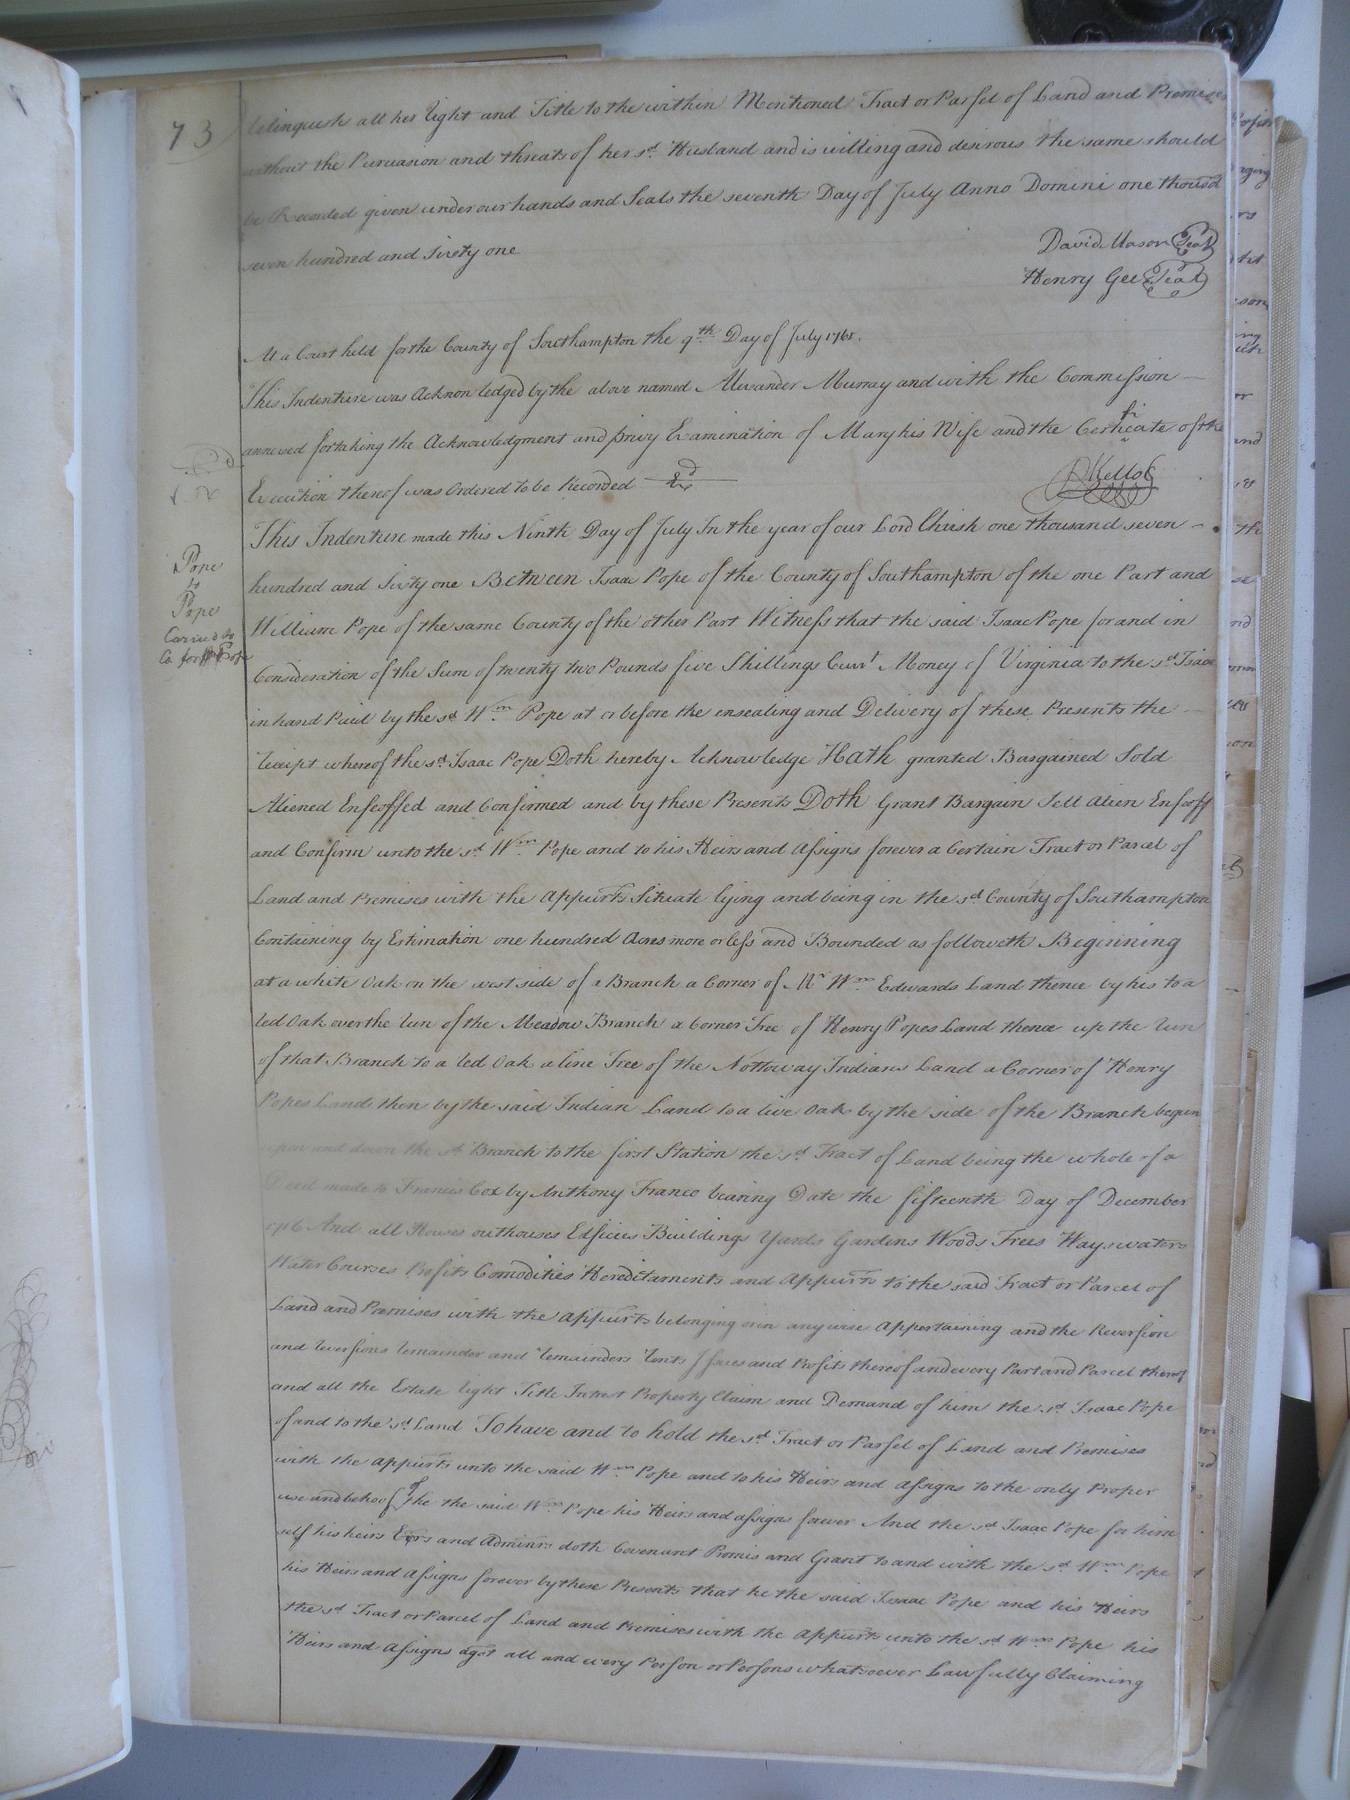 73
relinquish all her right and Title to the within Mentioned Tract or Parsel of Land and Premises
without the Pursuasion and threats of her sd. Husband and is willing and desirous the same should
be Recorded given under our hands and Seals the seventh Day of July Anno Domini one thousd
seven hundred and Sixty one
David Mason Seal
Henry Gee Seal
At a Court held for the County of Southampton the 9th Day of July 1761.
This Indenture was Acknowledged by the above named Alexander Murray and with the Commission
annexed for taking the Acknowledgment and privy Examination of Mary his Wife and the Certificate of the
Execution thereof was Ordered to be Recorded Exd
RKello C
This Indenture made this Ninth Day of July In the year of our Lord Christ one thousand seven
Pope
to
Pope
hundred and Sixty one Between Isaac Pope of the County of Southampton of the one Part and
William Pope of the same County of the other Part Witness that the said Isaac Pope for and in
Consideration of the Sum of twenty two Pounds five Shillings Currt Money of Virginia to the sd Isaac
in hand Paid by the sd Wm. Pope at or before the ensealing and Delivery of these Presents the
receipt whereof the sd. Isaac Pope Doth hereby Acknowledge Hath granted Bargained Sold
Aliened Enfeoffed and Confirmed and by these Presents Doth Grant Bargain Sell Alien Enfeoff
and Confirm unto the sd Wm. Pope and to his Heirs and Assigns forever a Certain Tract or Parcel of
Land and Premises with the Appurts Situate lying and being in the sd County of Southampton
Containing by Estimation one hundred Acres more or less and Bounded as followeth Beginning
at a white Oak on the west side of a Branch a Corner of Mr Wm. Edwards Land thence by his to a
red Oak over the run of the Meadow Branch a Corner Tree of Henry Popes Land thence up the run
of that Branch to a red Oak a line Tree of the Nottoway Indians Land a Corner of Henry
Popes Land then by the said Indian Land to a live Oak by the side of the Branch begun
upon and down the sd Branch to the first Station the sd Tract of Land being the whole of a
Deed made to Francis Cox by Anthony Franco bearing Date the fifteenth Day of December
And all Houses outhouses Edfices Buildings Yards Gardens Woods Trees Ways waters
Water Courses Profits Comodities Hereditaments and Appurts to the said Tract or Parcel of
Land and Premises with the Appurts belonging or in anywise Appertaining and the Reversion
and reversions remainder and remainders rents Issues and Profits thereof and every Part and Parcel thereof
and all the Estate right Title Intrest Property Claim and Demand of him the sd. Isaac Pope
of and to the sd Land To have and to hold the sd Tract or Parsel of Land and Premises
with the appurts unto the said Wm Pope and to his Heirs and Assigns to the only Proper
use and behoof of the the said Wm Pope his Heirs and assigns forever And the sd Isaac Pope for him
self his heirs Exrs and Adminrs doth Covenant Promis and Grant to and with the sd Wm Pope
his Heirs and Assigns forever by these Presents that he the said Isaac Pope and his Heirs
the sd Tract or Parcel of Land and Premises with the Appurts unto the sd Wm Pope his
Heirs and Assigns agst all and every Person or Persons whatsoever Lawfully Claiming